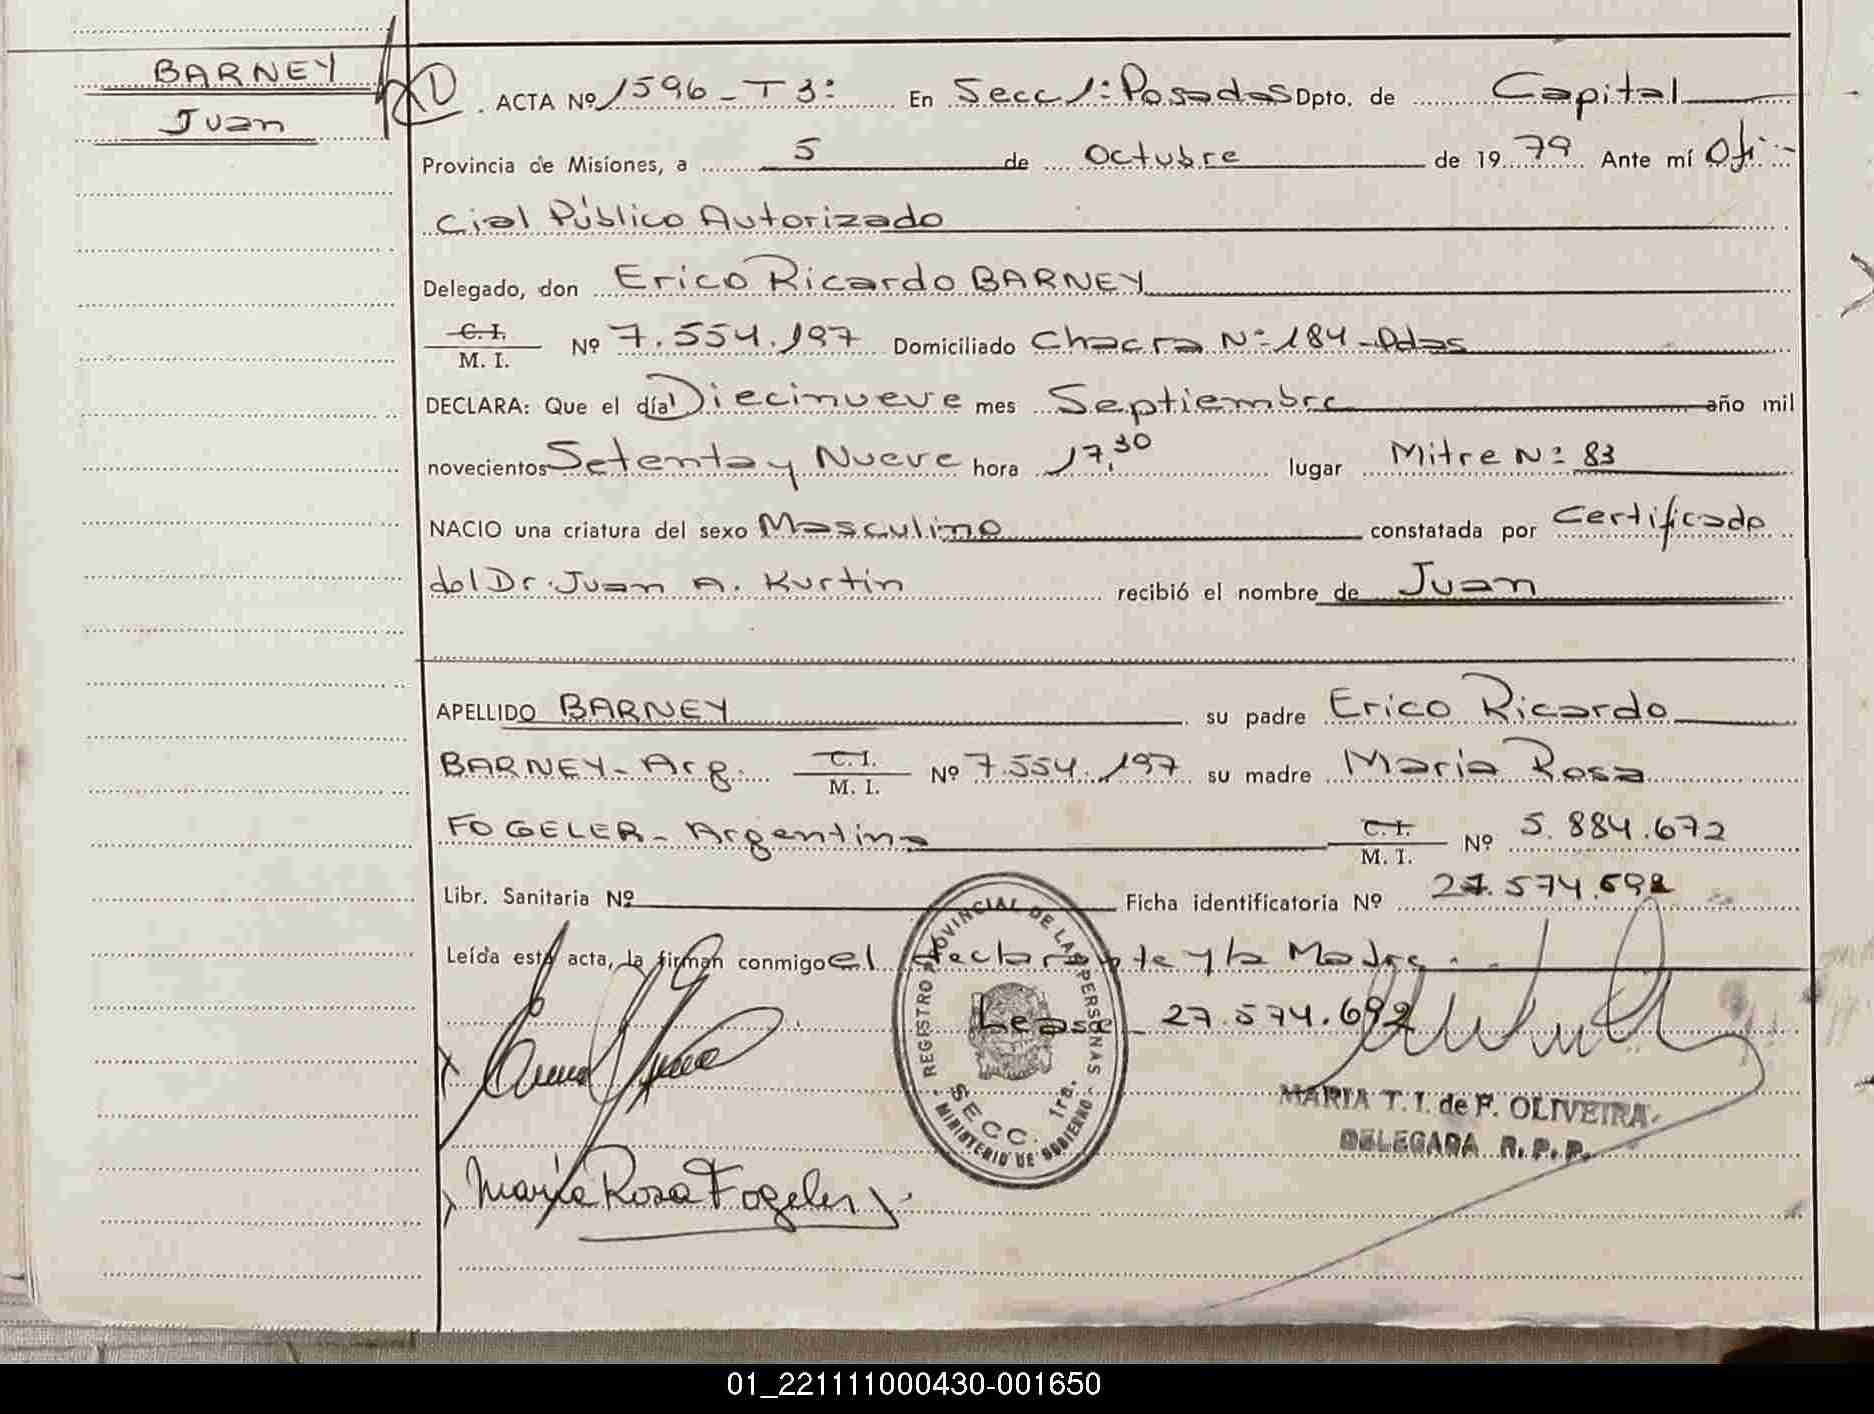 BARNEY
Juan
ACTA Nº 1596 - T 3º En Secc 1º Posadas Dpto. de Capital
Provincia de Misiones, a 5 de Octubre de 19 79 Ante mí Ofi-
cial Público Autorizado
Delegado, don Erico Ricardo BARNEY
C. I.
M. I. Nº 7.554.197 Domiciliado Chacra Nº 184 - Pdas
DECLARA: Que el día Diecinueve mes Septiembre año mil
novecientos Setenta y Nueve hora 17,30 lugar Mitre Nº 83
NACIO una criatura del sexo Masculino constatada por Certificado
del Dr. Juan A. Kurtin recibió el nombre de Juan
APELLIDO BARNEY su padre Erico Ricardo
BARNEY - Arg. C. I. M. I. Nº 7.554.197 su madre Maria Rosa
FOGELER - Argentina C. I. M. I. Nº 5.884.672
Libr. Sanitaria Nº Ficha identificatoria Nº 27.574.692
Leída esta acta, la firman conmigo el declarante y la Madre.
Lease - 27.574.692
REGISTRO PROVINCIAL DE LAS PERSONAS
SECC. 1ra.
MINISTERIO DE GOBIERNO
MARIA T. I. de F. OLIVEIRA
DELEGADA R. P. P.
Maria Rosa Fogeler
01_221111000430-001650